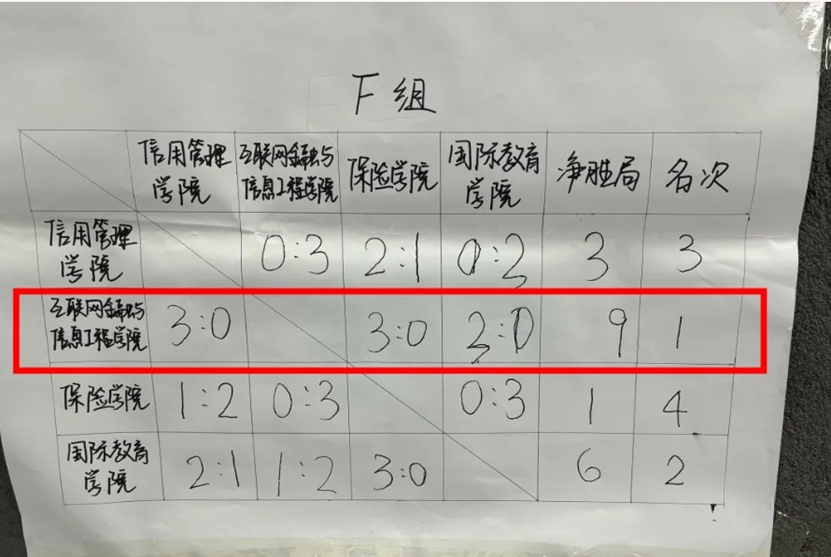 F组
信用管理 互联网金融与 保险学院 国际教育 净胜局 名次
学院 信息工程学院 学院
信用管理 0:3 2:1 3 3
学院
互联网金融与 3:0 3:0 9 1
信息工程学院
保险学院 1:2 0:3 0:3 1 4
国际教育 2:1 1:2 3:0 6 2
学院